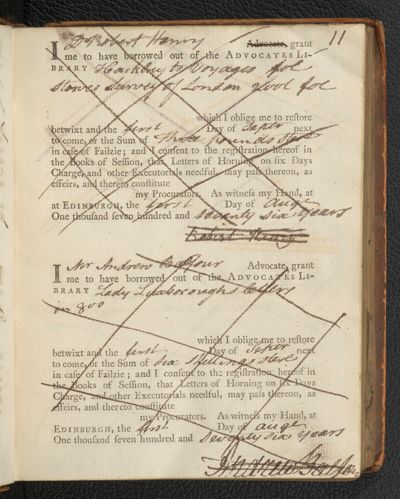 11
I Dr Robert Henry Advocate, grant
me to have borrowed out of the ADVOCATES LI-
BRARY Hackluyts Voyages fol
Stowes Survey of London 2 vol fol
which I oblige me to reſtore
betwixt and the first Day of Septr next
to come, or the Sum of Three pounds Ster
in caſe of Failzie; and I conſent to the regiſtration hereof in
the Books of Seſſion, that Letters of Horning on ſix Days
Charge, and other Executorials needful, may paſs thereon, as
effeirs, and thereto conſtitute
my Procurators. As witneſs my Hand, at
at EDINBURGH, the first Day of Augt
One thouſand ſeven hundred and seventy six years
Robert Henry
I Mr Andrew Balfour Advocate, grant
me to have borrowed out of the ADVOCATES LI-
BRARY Lady Luxboroughs Letters
in 8vo
which I oblige me to reſtore
betwixt and the first Day of Septr next
to come, or the Sum of six shillings sterl
in caſe of Failzie; and I conſent to the regiſtration hereof in
the Books of Seſſion, that Letters of Horning on ſix Days
Charge, and other Executorials needful, may paſs thereon, as
effeirs, and thereto conſtitute
my Procurators. As witneſs my Hand, at
EDINBURGH, the first Day of Augt
One thouſand ſeven hundred and Seventy six years
Andrew Balfour